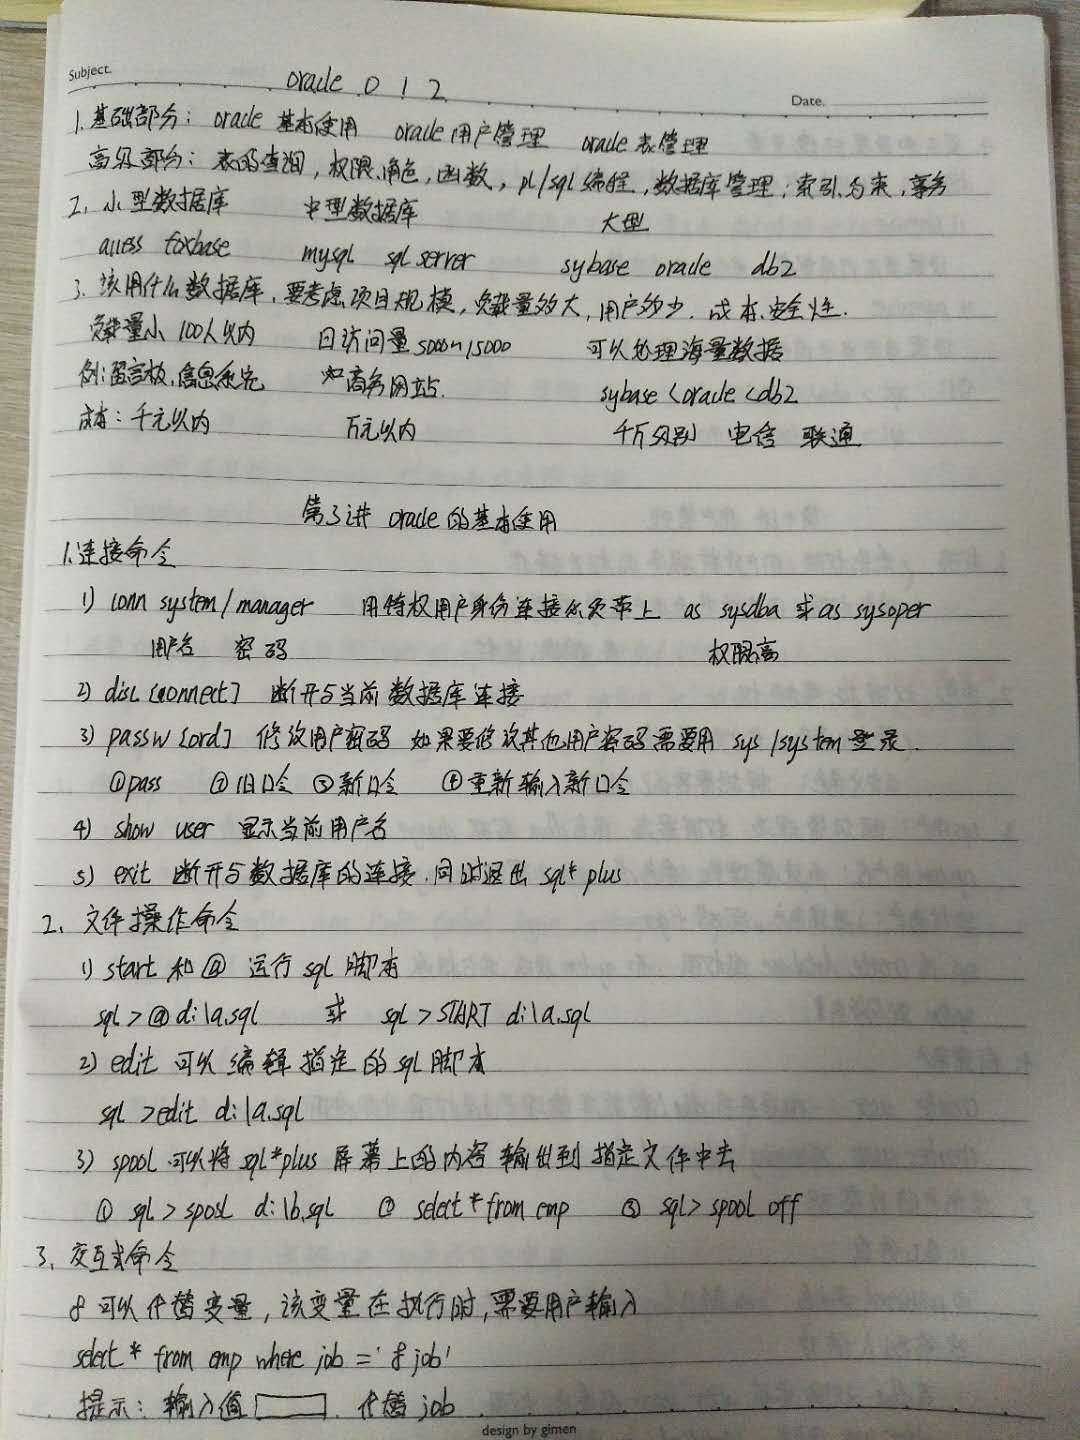 Subject.
oracle 0 1 2
Date.
1.基础部分: oracle 基本使用 oracle用户管理 oracle 表管理
高级部分: 表的查询,权限、角色,函数,pl/sql编程,数据库管理;索引,约束,事务
2. 小型数据库 中型数据库 大型
access foxbase mysql sql server sybase oracle db2
3. 该用什么数据库,要考虑项目规模,负载量多大,用户多少.成本、安全性.
负载量小 100人以内 日访问量5000~15000 可以处理海量数据
例:留言板、信息系统 如商务网站. sybase<oracle<db2
成本:千元以内 万元以内 千万级别 电信 联通
第3讲 oracle的基本使用
1.连接命令
1) conn system/manager 用特权用户身份连接必须带上 as sysdba 或as sysoper
用户名 密码 权限高
2) disc[connect] 断开与当前数据库连接
3) passw[ord] 修改用户密码 如果要修改其他用户密码需要用 sys/system登录.
①pass ②旧口令 ③新口令 ④重新输入新口令
4) show user 显示当前用户名
5) exit 断开与数据库的连接.同时退出 sql*plus
2. 文件操作命令
1) start 和 @ 运行sql脚本
sql>@ d:\a.sql 或 sql>START d:\a.sql
2) edit 可以编辑指定的sql脚本
sql>edit d:\a.sql
3) spool 可以将sql*plus屏幕上的内容输出到指定文件中去
① sql>spool d:\b.sql ② select*from emp ③ sql>spool off
3. 交互式命令
& 可以代替变量,该变量在执行时,需要用户输入
select* from emp where job ='&job'
提示:输入值 代替job
design by gimen